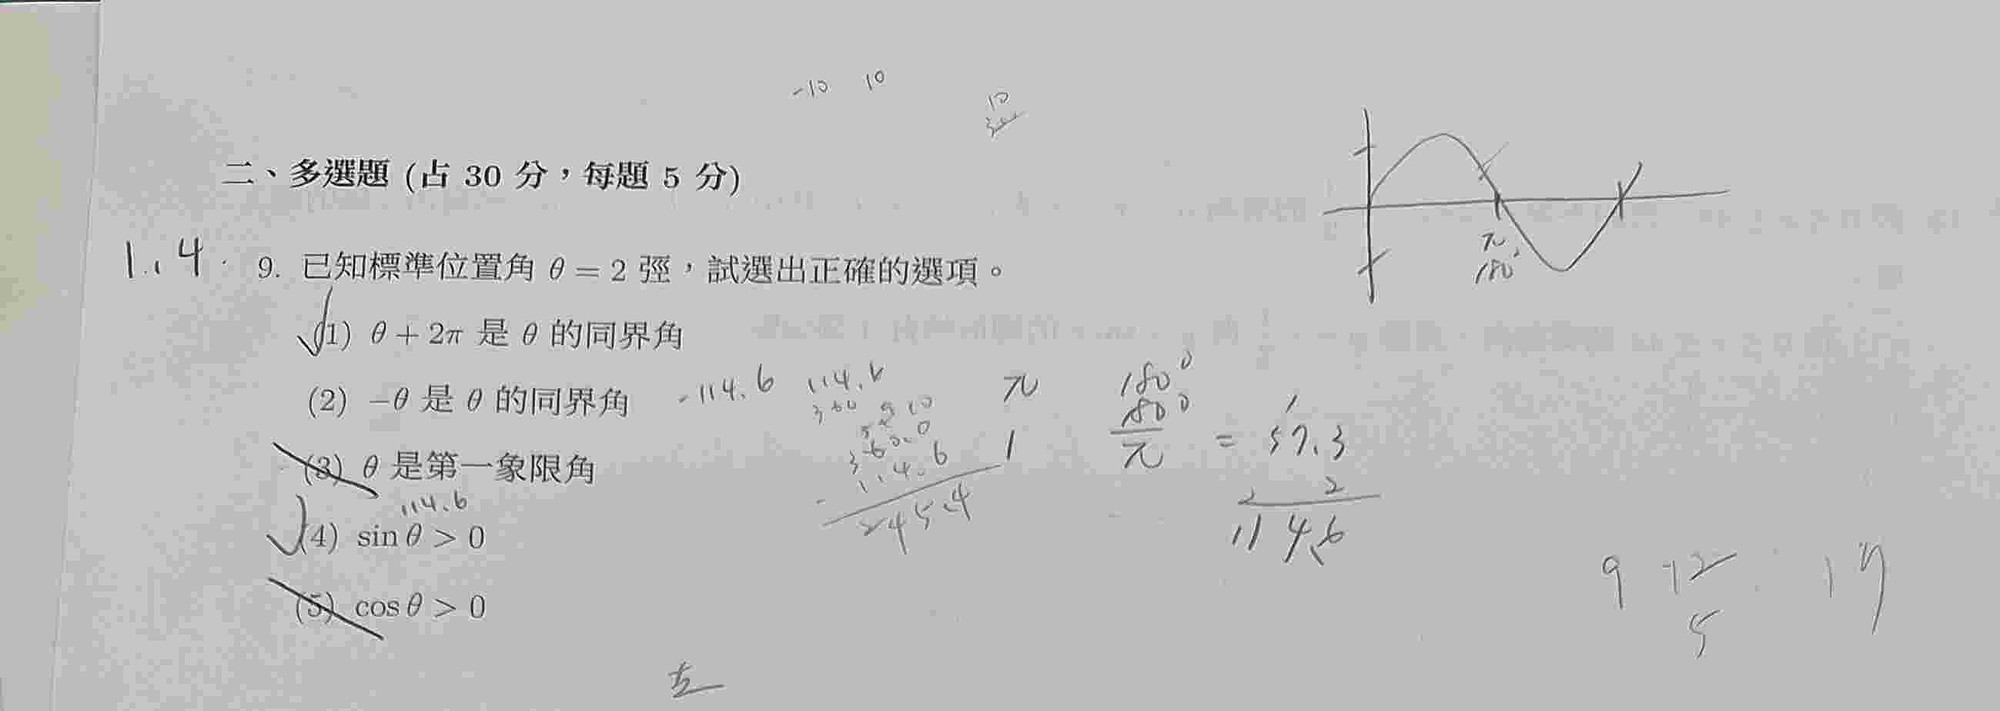 -10 10
10
二、多選題 (占 30 分，每題 5 分)
1.,4
9. 已知標準位置角 θ = 2 弳，試選出正確的選項。
π
180°
(1) θ + 2π 是 θ 的同界角
(2) −θ 是 θ 的同界角
-114.6 114.6
360
5 9 10
360.0
- 114.6
245.4
π 180°
1 180°/π = 57.3
2
114.6
(3) θ 是第一象限角
114.6
(4) sin θ > 0
(5) cos θ > 0
9 -12 17
5